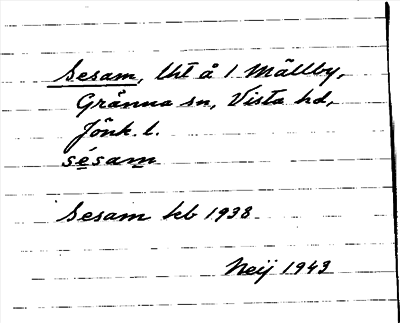 Sesam, lht å 1 Mällby,
Gränna sn, Vista hd,
Jönk. l.
sésam
Sesam kb 1938
Neij 1943